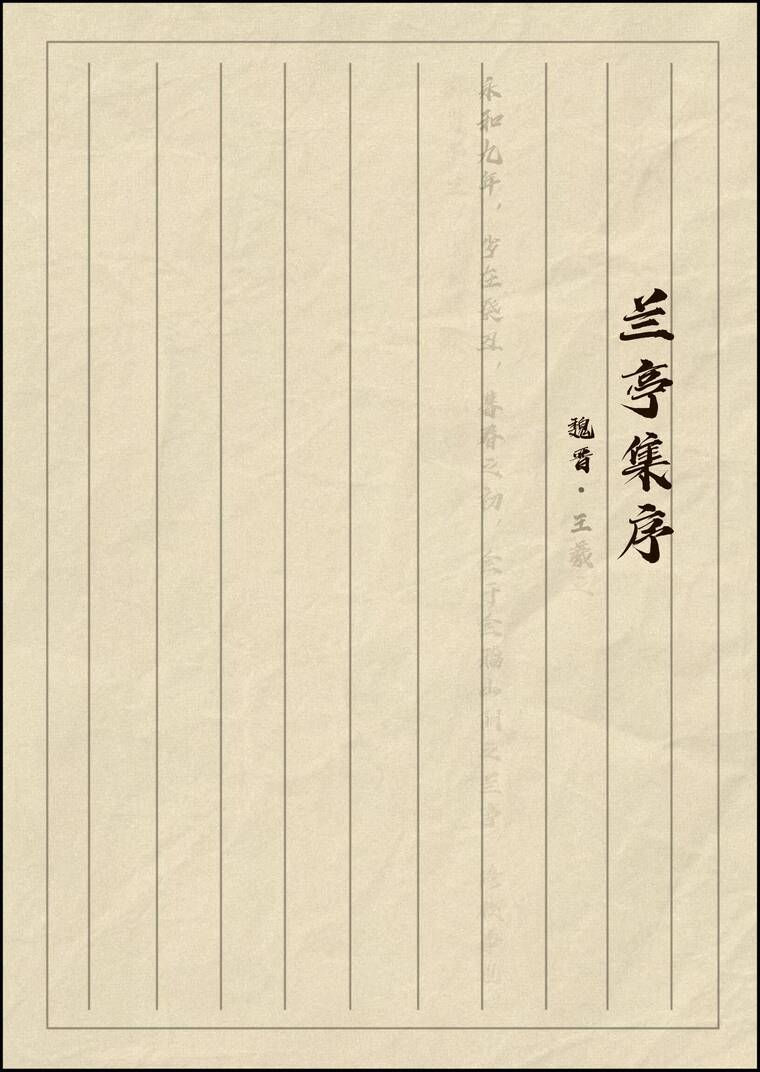 兰亭集序
魏晋·王羲之
永和九年，岁在癸丑，暮春之初，会于会稽山阴之兰亭